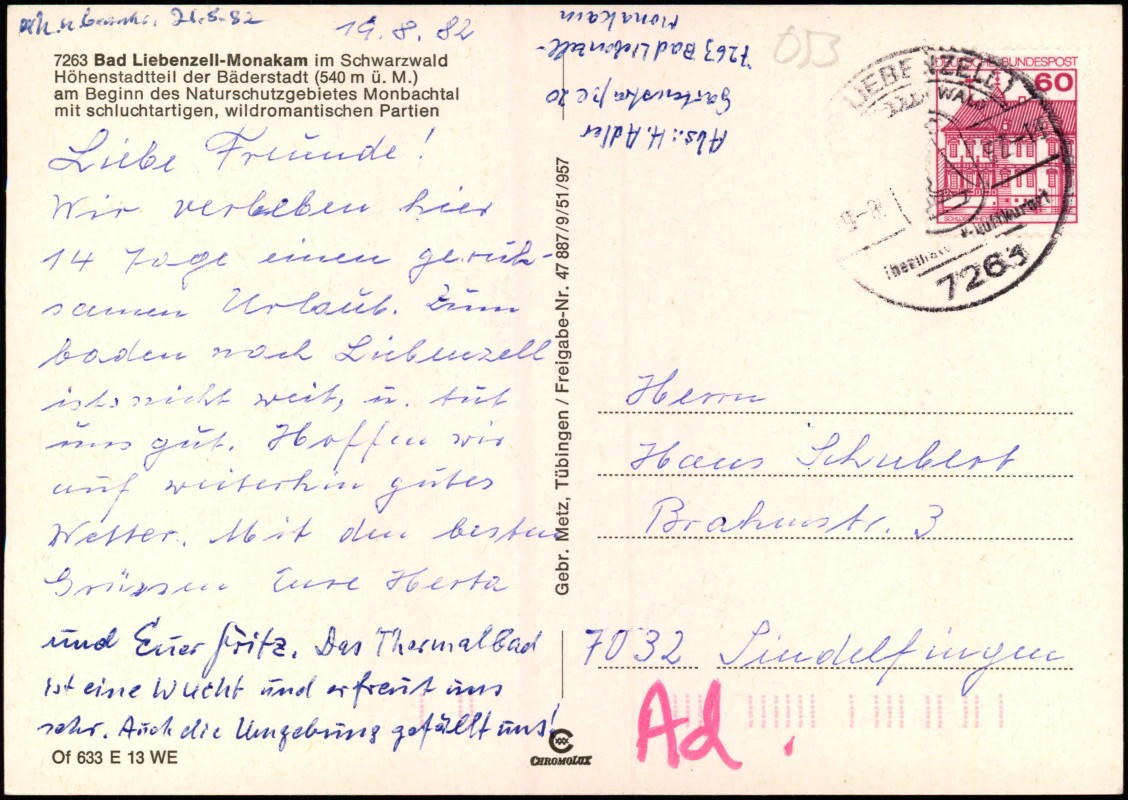 21.8.82
19.8.82
7263 Bad Liebenzell-Monakam im Schwarzwald
Höhenstadtteil der Bäderstadt (540 m ü. M.)
am Beginn des Naturschutzgebietes Monbachtal
mit schluchtartigen, wildromantischen Partien
Liebe Freunde!
Wir verleben hier
14 Tage einen geruh-
samen Urlaub. Zum
baden nach Liebenzell
ists nicht weit, u. tut
uns gut. Hoffen wir
auf weiterhin gutes
Wetter. Mit den besten
Grüssen Eure Herta
und Euer Fritz. Das Thermalbad
ist eine Wucht und erfreut uns
sehr. Auch die Umgebung gefällt uns!
Of 633 E 13 WE
Abs.: H. Adler
Gartenstraße 20
7263 Bad Liebenzell-
Monakam
Gebr. Metz, Tübingen / Freigabe-Nr. 47 887/9/51/957
CHROMOLUX
053
BUNDESPOST
60
LIEBENZELL 1
7263
Herrn
Hans Schubert
Brahmstr. 3
7032 Sindelfingen
Ad